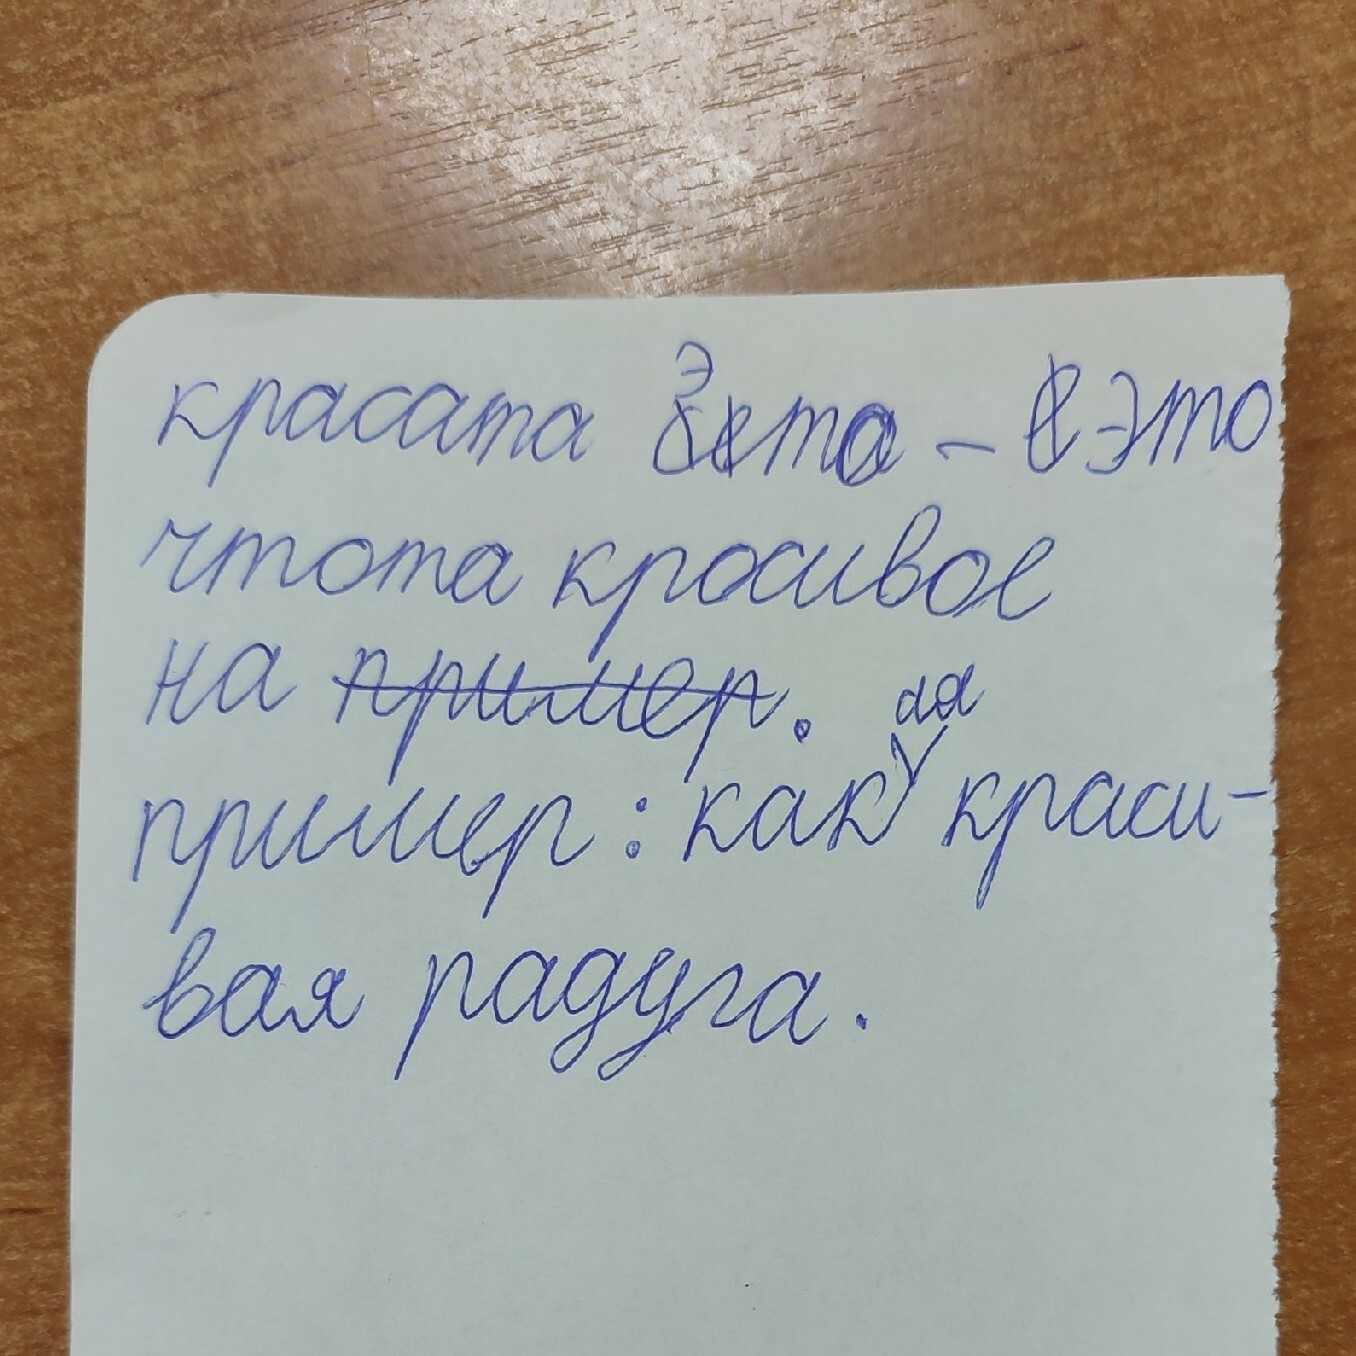 красата Эта - это
чтота красивое
на пример.
пример: какая краси-
вая радуга.